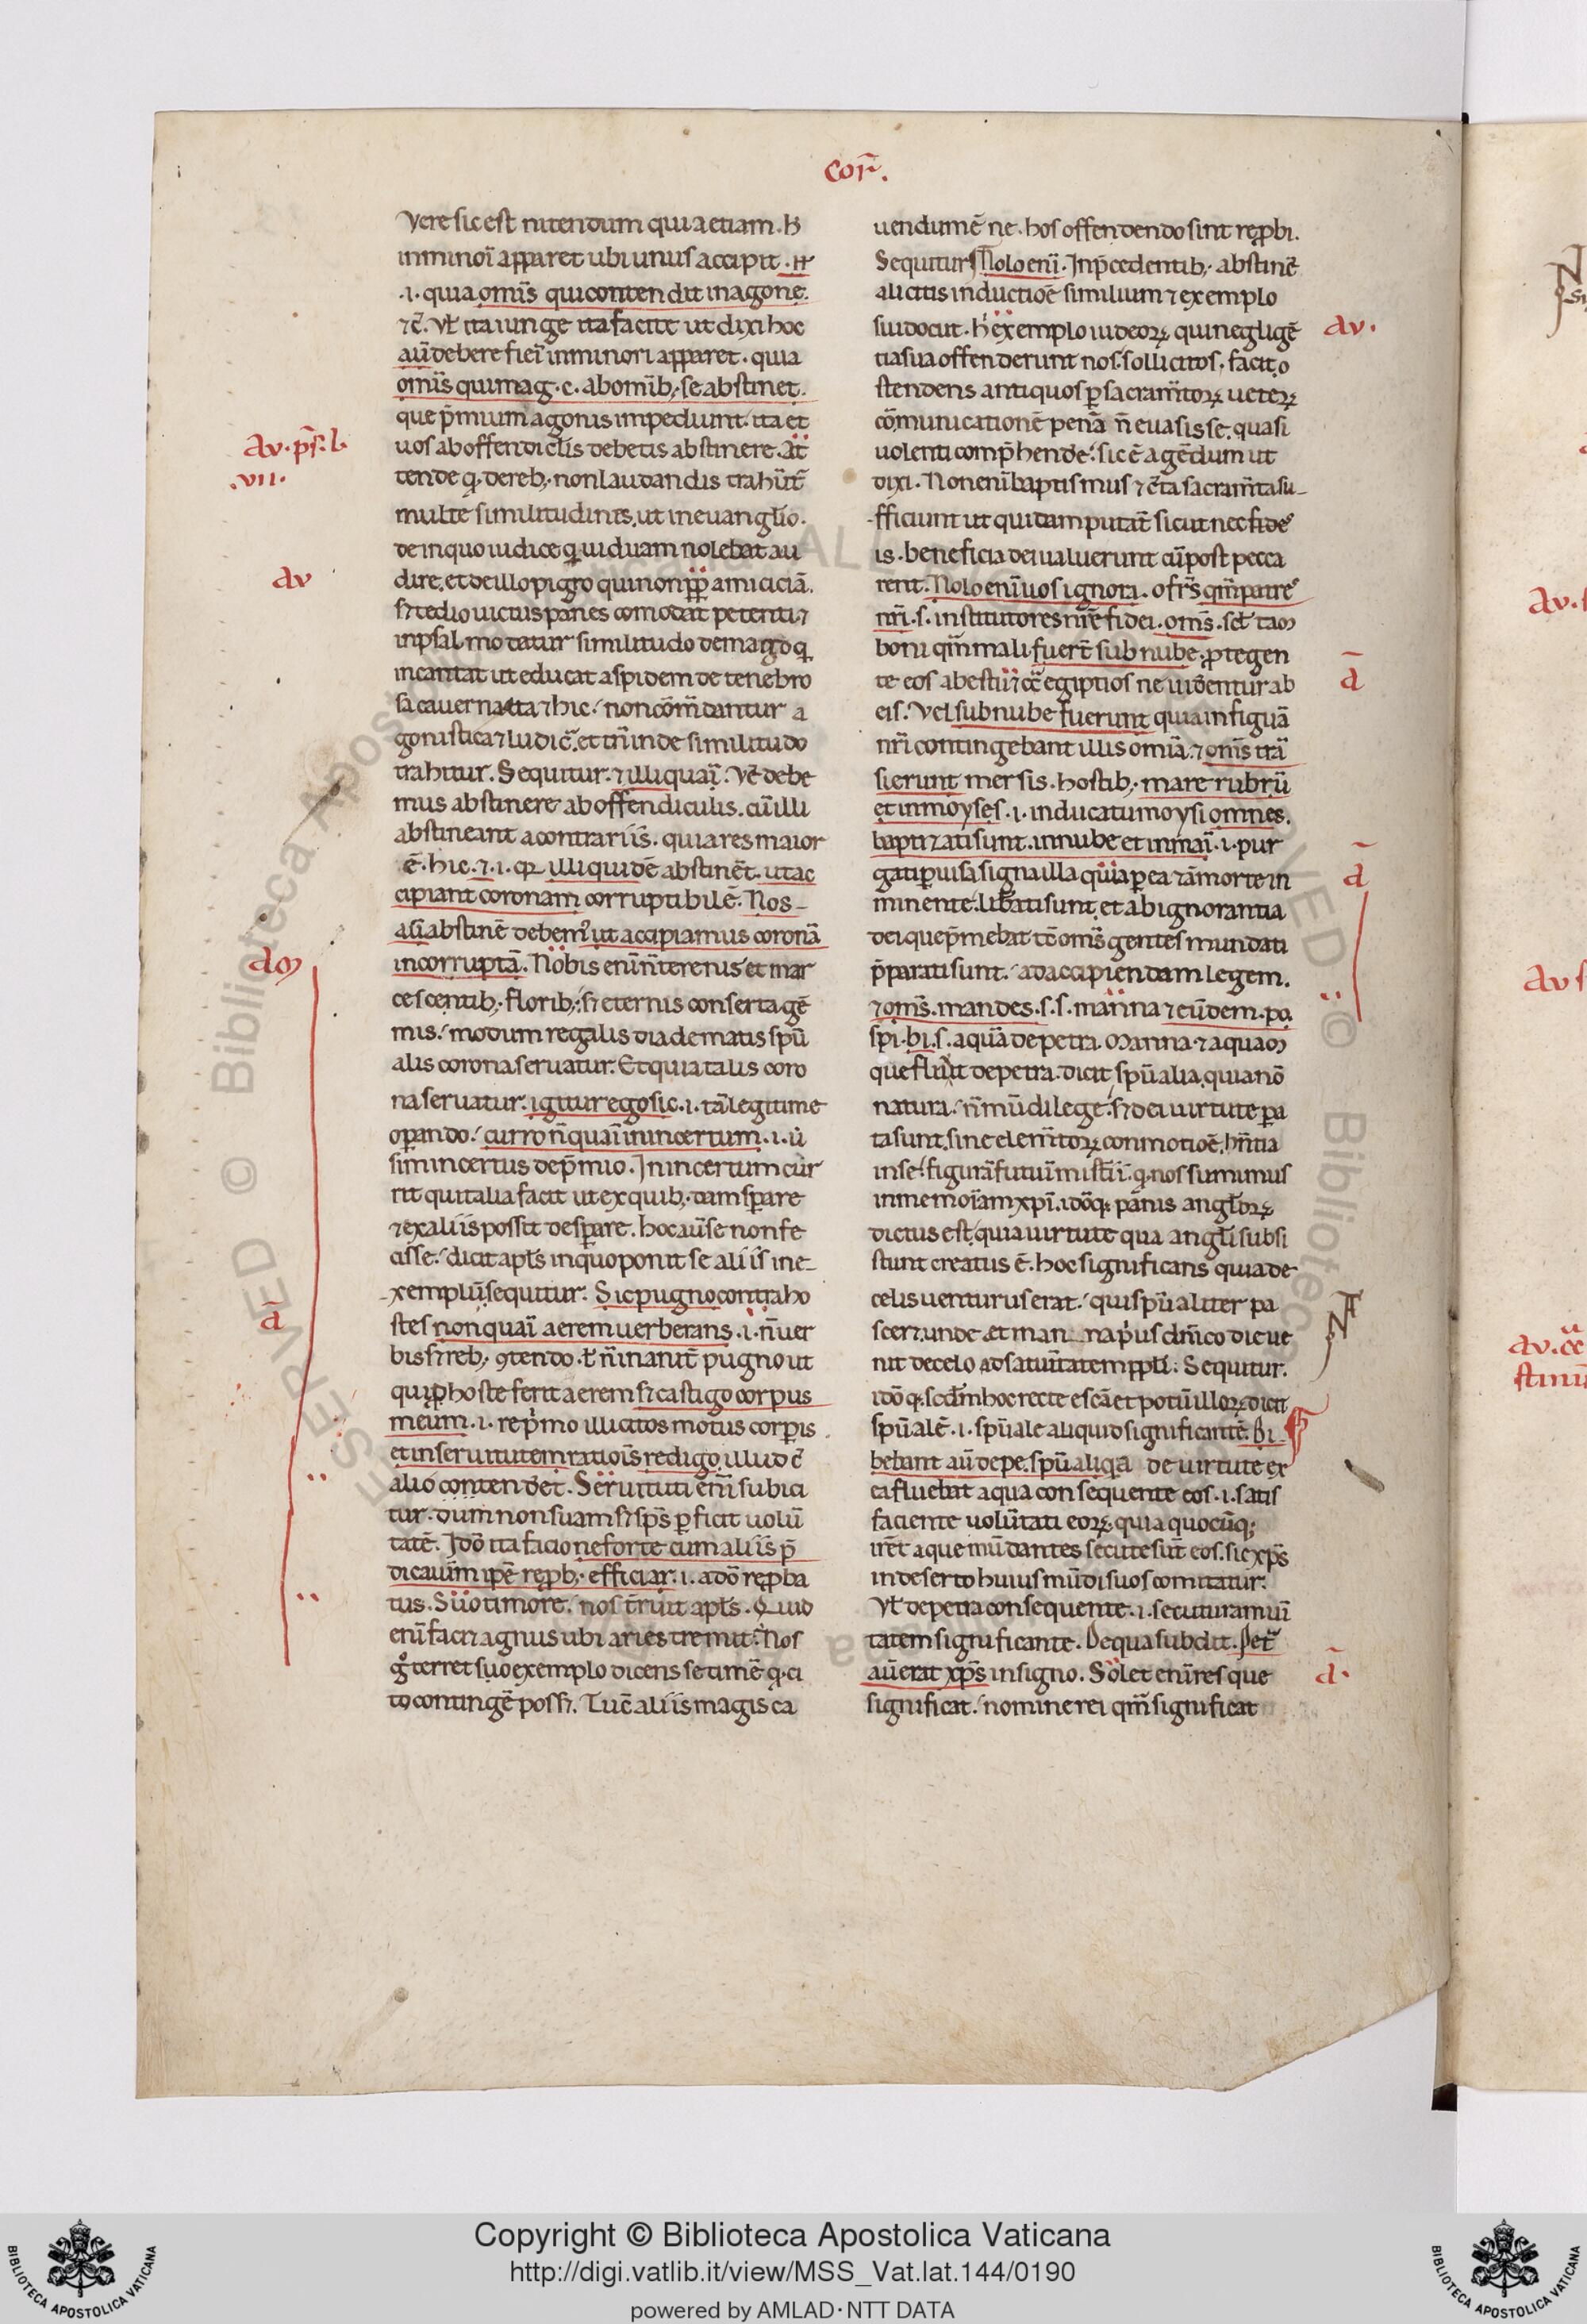 Cor̄.
Vere sic est nitendum quia etiam. h̄
in minoī apparet ubi unus accipit .
.i. quia omīs qui contendit in agone.
⁊c̄. Vl̄ ita iunge ita facite ut dixi hoc
aū debere fieī in minori apparet. quia
omīs qui in ag. c. ab omīb; se abstinet.
que p̄mium agonis impediunt. ita et
uos ab offendiclis debetis abstinere. At
tende q. de reb; non laudandis trahūt̄
multe similitudines, ut in euanglīo.
de iniquo iudice q̄ uiduam nolebat au
dire. et de illo pigro qui non pp̄ amiciciā.
sꝫ tedio uictus panes comodat petenti. ⁊
in psalmo datur similitudo de mago q̄
incantat ut educat aspidem de tenebro
sa cauerna. ita ⁊ hic. non cōm̄dantur a
gonistica ⁊ ludic̄. et tn̄ inde similitudo
trahitur. Sequitur. ⁊ illi quaī. Vl̄ debe
mus abstinere ab offendiculis. cū illi
abstineant a contrariis. quia res maior
ē. hic. ⁊ .i. qꝛ illi quidē abstinēt. ut ac
cipiant coronam corruptibilē. Nos
aū abstinē debem' ut accipiamus coronā
incorruptā. Nobis enī n̄ terenis et mar
cescentib; florib; sꝫ eternis conserta gē
mis. modum regalis diadematis spū
alis corona seruatur. Et quia talis coro
na seruatur. igitur ego sic. i. tā legitime
operando. curro n̄ quaī in incertum. i. ū
sim incertus de p̄mio. In incertum cur
rit qui talia facit ut ex quib;dam sperare
⁊ ex aliis possit desperare. hoc aū se non fe
cisse. dicit apl̄s in quo ponit se aliis in e-
xemplū. sequitur. Sic pugno contra ho
stes non quaī aerem uerberans .i. n̄ uer
bis sꝫ reb; ꝯtendo. l̄ n̄ inanit̄ pugno ut
qui p̄ hoste ferit aerem sꝫ castigo corpus
meum. i. rep̄mo illicitos motus corp̄is
et in seruitutem ratiōis redigo illud c̄
alio contendet. Seruituti enī subici
tur. dum non suam sꝫ sp̄s p̄ficit uolū
tatē. Idō ita facio ne forte cum aliis p̄
dicauīm ip̄e rep̄b; efficiar. i. a dō rep̄ba
tus. Suo timore. nos t̄ruit apl̄s. Quid
enī facꝫ agnus ubi aries tremit. Nos
g° terret suo exemplo dicens se timē q. ci
to contingē possꝫ. Tuc̄ aliis magis ca
uendum ē ne. hos offendendo sint rep̄bi.
Sequitur Nolo enī. In p̄cedentib; abstinē
alicitis inductiōe similium ⁊ exemplo
sui docuit. h̄ exemplo iudeoꝝ qui negligē
tia sua offenderunt nos. sollicitos. facit o
stendens antiquos p̄ sacram̄toꝝ ueteꝝ
cōmunicationē penā n̄ euasisse. quasi
uolenti comp̄hende. sic ē agēdum ut
dixi. Non enī baptismus ⁊ c̄ta sacram̄ta su-
fficiunt ut quidam putāt sicut nec
is. beneficia dei ualuerunt cū post pecca
rent. Nolo enī uos ignorā. o fr̄s qm̄ patre'
nr̄i. s. institutores nr̄e fidei. om̄s. scl̄ tam
boni qm̄ mali fuer̄t sub nube. protegen
te eos ab estū ⁊ cc̄ egiptios ne uiderentur ab
eis. Vel sub nube fuerunt quia in figuā
nr̄i contingebant illis omīa. ⁊ omīs trā
sierunt mersis. hostib; mare rubrū
et in moyses. i. in ducatu moysi omnes.
baptizati sunt. in nube et in maī. i. pur
gati p̄ uisa signa illa quia p̄ ea a morte in
minente. liberati sunt. et ab ignorantia
dei que p̄mebat tc̄ om̄s gentes mundati
p̄parati sunt. ad accipiendam legem.
⁊ om̄s. mandes. s. s. manna ⁊ eūdem. po.
spī. bi. s. aquā de petra. Manna ⁊ aquam
que fluxit de petra. dicit spūalia. quia nō
natura. n̄ mūdi lege. sꝫ dei uirtute p̄a
ta sunt. sine elem̄toꝝ conmotiōe. hn̄tia
in se. figurā futuī mistīi. q. nos sumimus
in memoīam xp̄i. idōq; panis angl̄oꝝ
dictus est. quia uirtute qua angl̄i subsi
stunt creatus ē. hoc significans quia de
celis uenturus erat. qui spūaliter pa
sceret. unde et manna p̄us dn̄ico die ue
nit de celo ad satuītatem ppl̄i. Sequitur.
idō q. scdm̄ hoc recte escā et potū illoꝝ dicit
spūalē. i. spūale aliquid significante. Bi-
bebant aū de pe. spūali qa de uirtute ex
ea fluebat aqua consequente eos. i. satis
faciente uolūtati eoꝝ. quia quocūq;
irēt aque mūdantes secute sūt eos. sic xp̄s
in deserto huius mūdi suos comitatur.
Vl̄ de petra consequente. i. secuturam uī
tatem significante. De qua subdit. Pet̄
aū erat xp̄s in signo. Solet enī res que
significat. nomine rei qm̄ significat
av. ps̄. l.
.vii.
av
am
ā
av.
d̄
d̄
d̄.
Copyright © Biblioteca Apostolica Vaticana
http://digi.vatlib.it/view/MSS_Vat.lat.144/0190
powered by AMLAD·NTT DATA
BIBLIOTECA APOSTOLICA VATICANA
BIBLIOTECA APOSTOLICA VATICANA